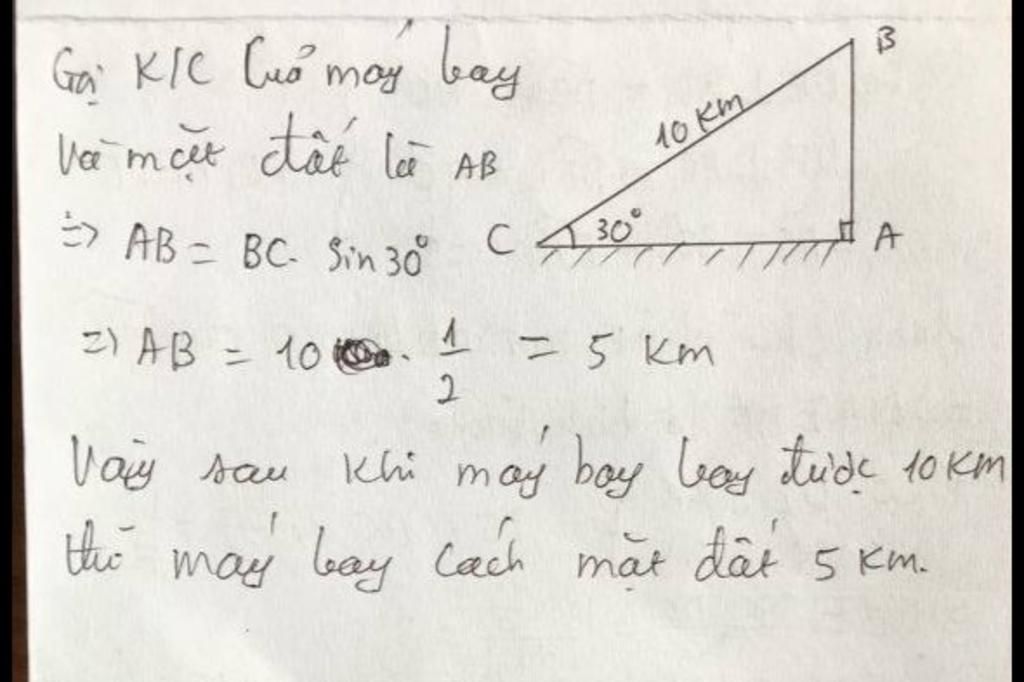 Gọi K/C của máy bay
và mặt đất là AB
=> AB = BC. Sin 30°
=> AB = 10 . 1/2 = 5 Km
Vậy sau khi máy bay bay được 10 KM
thì máy bay cách mặt đất 5 Km.
B
10 KM
C 30° A